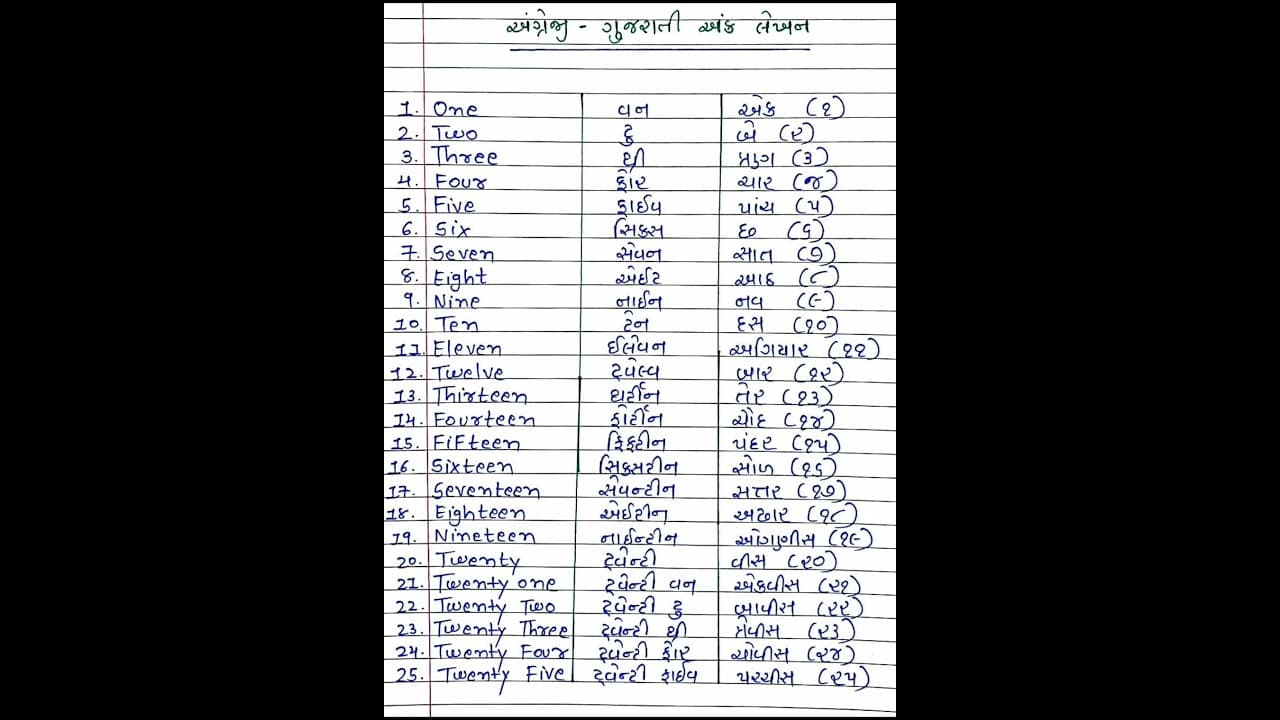 અંગ્રેજી - ગુજરાતી અંક લેખન
1. One વન એક (૧)
2. Two ટુ બે (૨)
3. Three થ્રી ત્રણ (૩)
4. Four ફોર ચાર (૪)
5. Five ફાઈવ પાંચ (૫)
6. Six સિક્સ છ (૬)
7. Seven સેવન સાત (૭)
8. Eight એઈટ આઠ (૮)
9. Nine નાઈન નવ (૯)
10. Ten ટેન દસ (૧૦)
11. Eleven ઈલેવન અગિયાર (૧૧)
12. Twelve ટ્વેલ્વ બાર (૧૨)
13. Thirteen થર્ટીન તેર (૧૩)
14. Fourteen ફોર્ટીન ચૌદ (૧૪)
15. FiFteen ફિફ્ટીન પંદર (૧૫)
16. Sixteen સિક્સટીન સોળ (૧૬)
17. Seventeen સેવન્ટીન સત્તર (૧૭)
18. Eighteen એઈટીન અઢાર (૧૮)
19. Nineteen નાઈન્ટીન ઓગણીસ (૧૯)
20. Twenty ટ્વેન્ટી વીસ (૨૦)
21. Twenty one ટ્વેન્ટી વન એકવીસ (૨૧)
22. Twenty Two ટ્વેન્ટી ટુ બાવીસ (૨૨)
23. Twenty Three ટ્વેન્ટી થ્રી ત્રેવીસ (૨૩)
24. Twenty Four ટ્વેન્ટી ફોર ચોવીસ (૨૪)
25. Twenty Five ટ્વેન્ટી ફાઈવ પચ્ચીસ (૨૫)